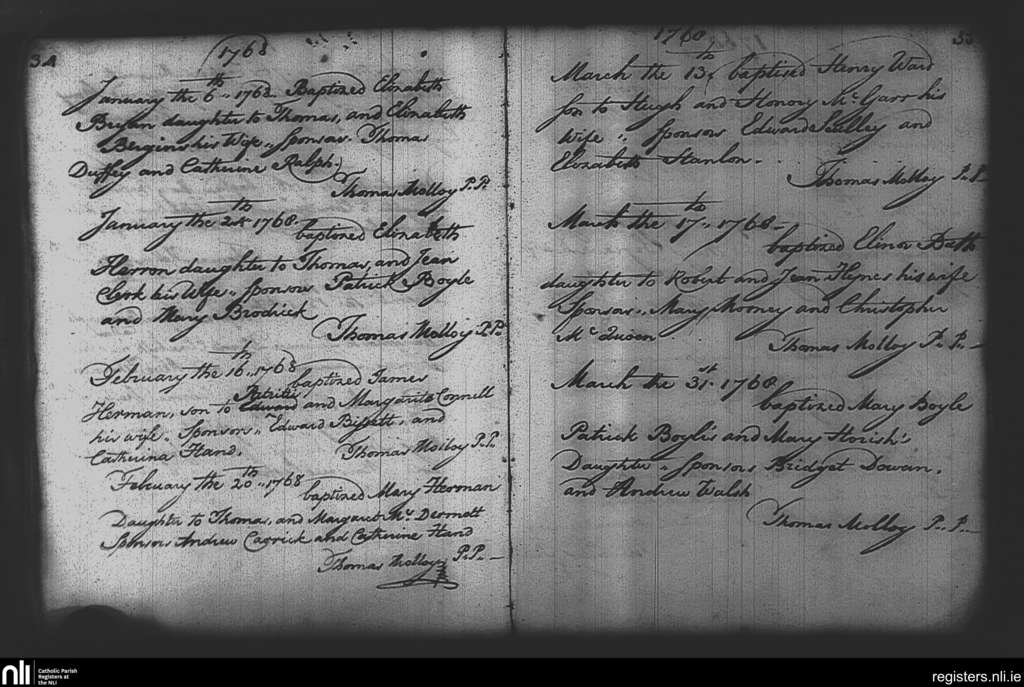 34
1768
January the 6th 1768 Baptized Elizabeth
Bryan daughter to Thomas, and Elizabeth
Bergins his Wife,, Sponsar Thomas
Duffey and Catherine Ralph.
Thomas Molloy P.P.
January the 24th 1768.
baptized Elizabeth
Harron daughter to Thomas, and Jean
Clerk his Wife,, Sponsors Patrick Boyle
and Mary Brodrick
Thomas Molloy P.P.
February the 16th,, 1768
baptized James
Patrik
Herman, son to Edward and Margarit Connell
his wife,, Sponsor,, Edward Bissett, and
Catherina Hand.
Thomas Molloy P.P.
February the 20th,, 1768
baptized Mary Herman
Daughter to Thomas, and Margaret Mc Dermott
Sponsors Andrew Carrick and Catherine Hand
Thomas Molloy P.P.
1768
35
March the 13th baptised Henry Ward
son to Hugh and Honory Mc Garr his
Wife,, Sponsors Edward Sculley and
Elizabeth Stanlon.
Thomas Molloy P.P.
March the 17th,, 1768
baptized Elinor Bath
daughter to Robert and Jean Hynes his wife
Sponsors,, Mary Mooney and Christopher
Mc Quoen
Thomas Molloy P.P.
March the 31st 1768
baptized Mary Boyle
Patrick Boyle's and Mary Horish's
Daughter,, Sponsors Bridget Dowan,
and Andrew Walsh
Thomas Molloy P.P.
nli
Catholic Parish
Registers at
the NLI
registers.nli.ie